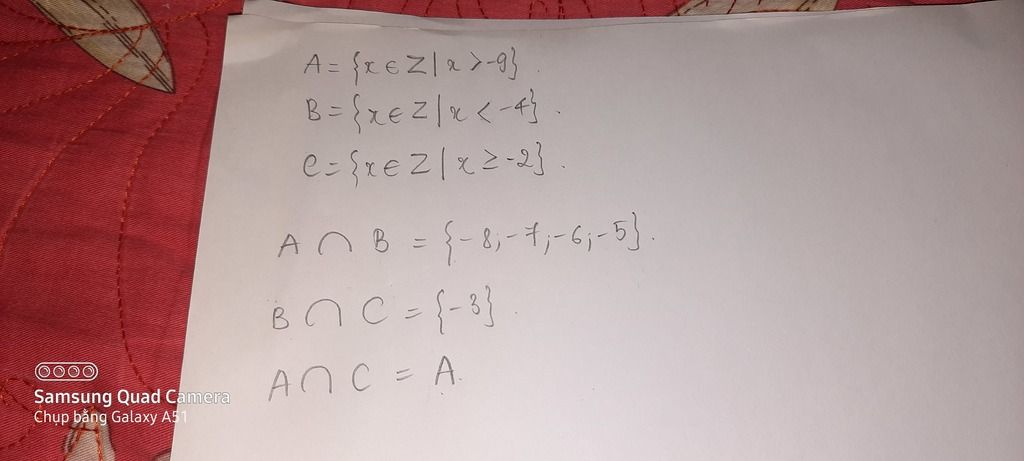 A = {x ∈ Z | x > -9}.
B = {x ∈ Z | x < -4}.
C = {x ∈ Z | x ≥ -2}.
A ∩ B = {-8; -7; -6; -5}.
B ∩ C = {-3}.
A ∩ C = A.
Samsung Quad Camera
Chụp bằng Galaxy A51